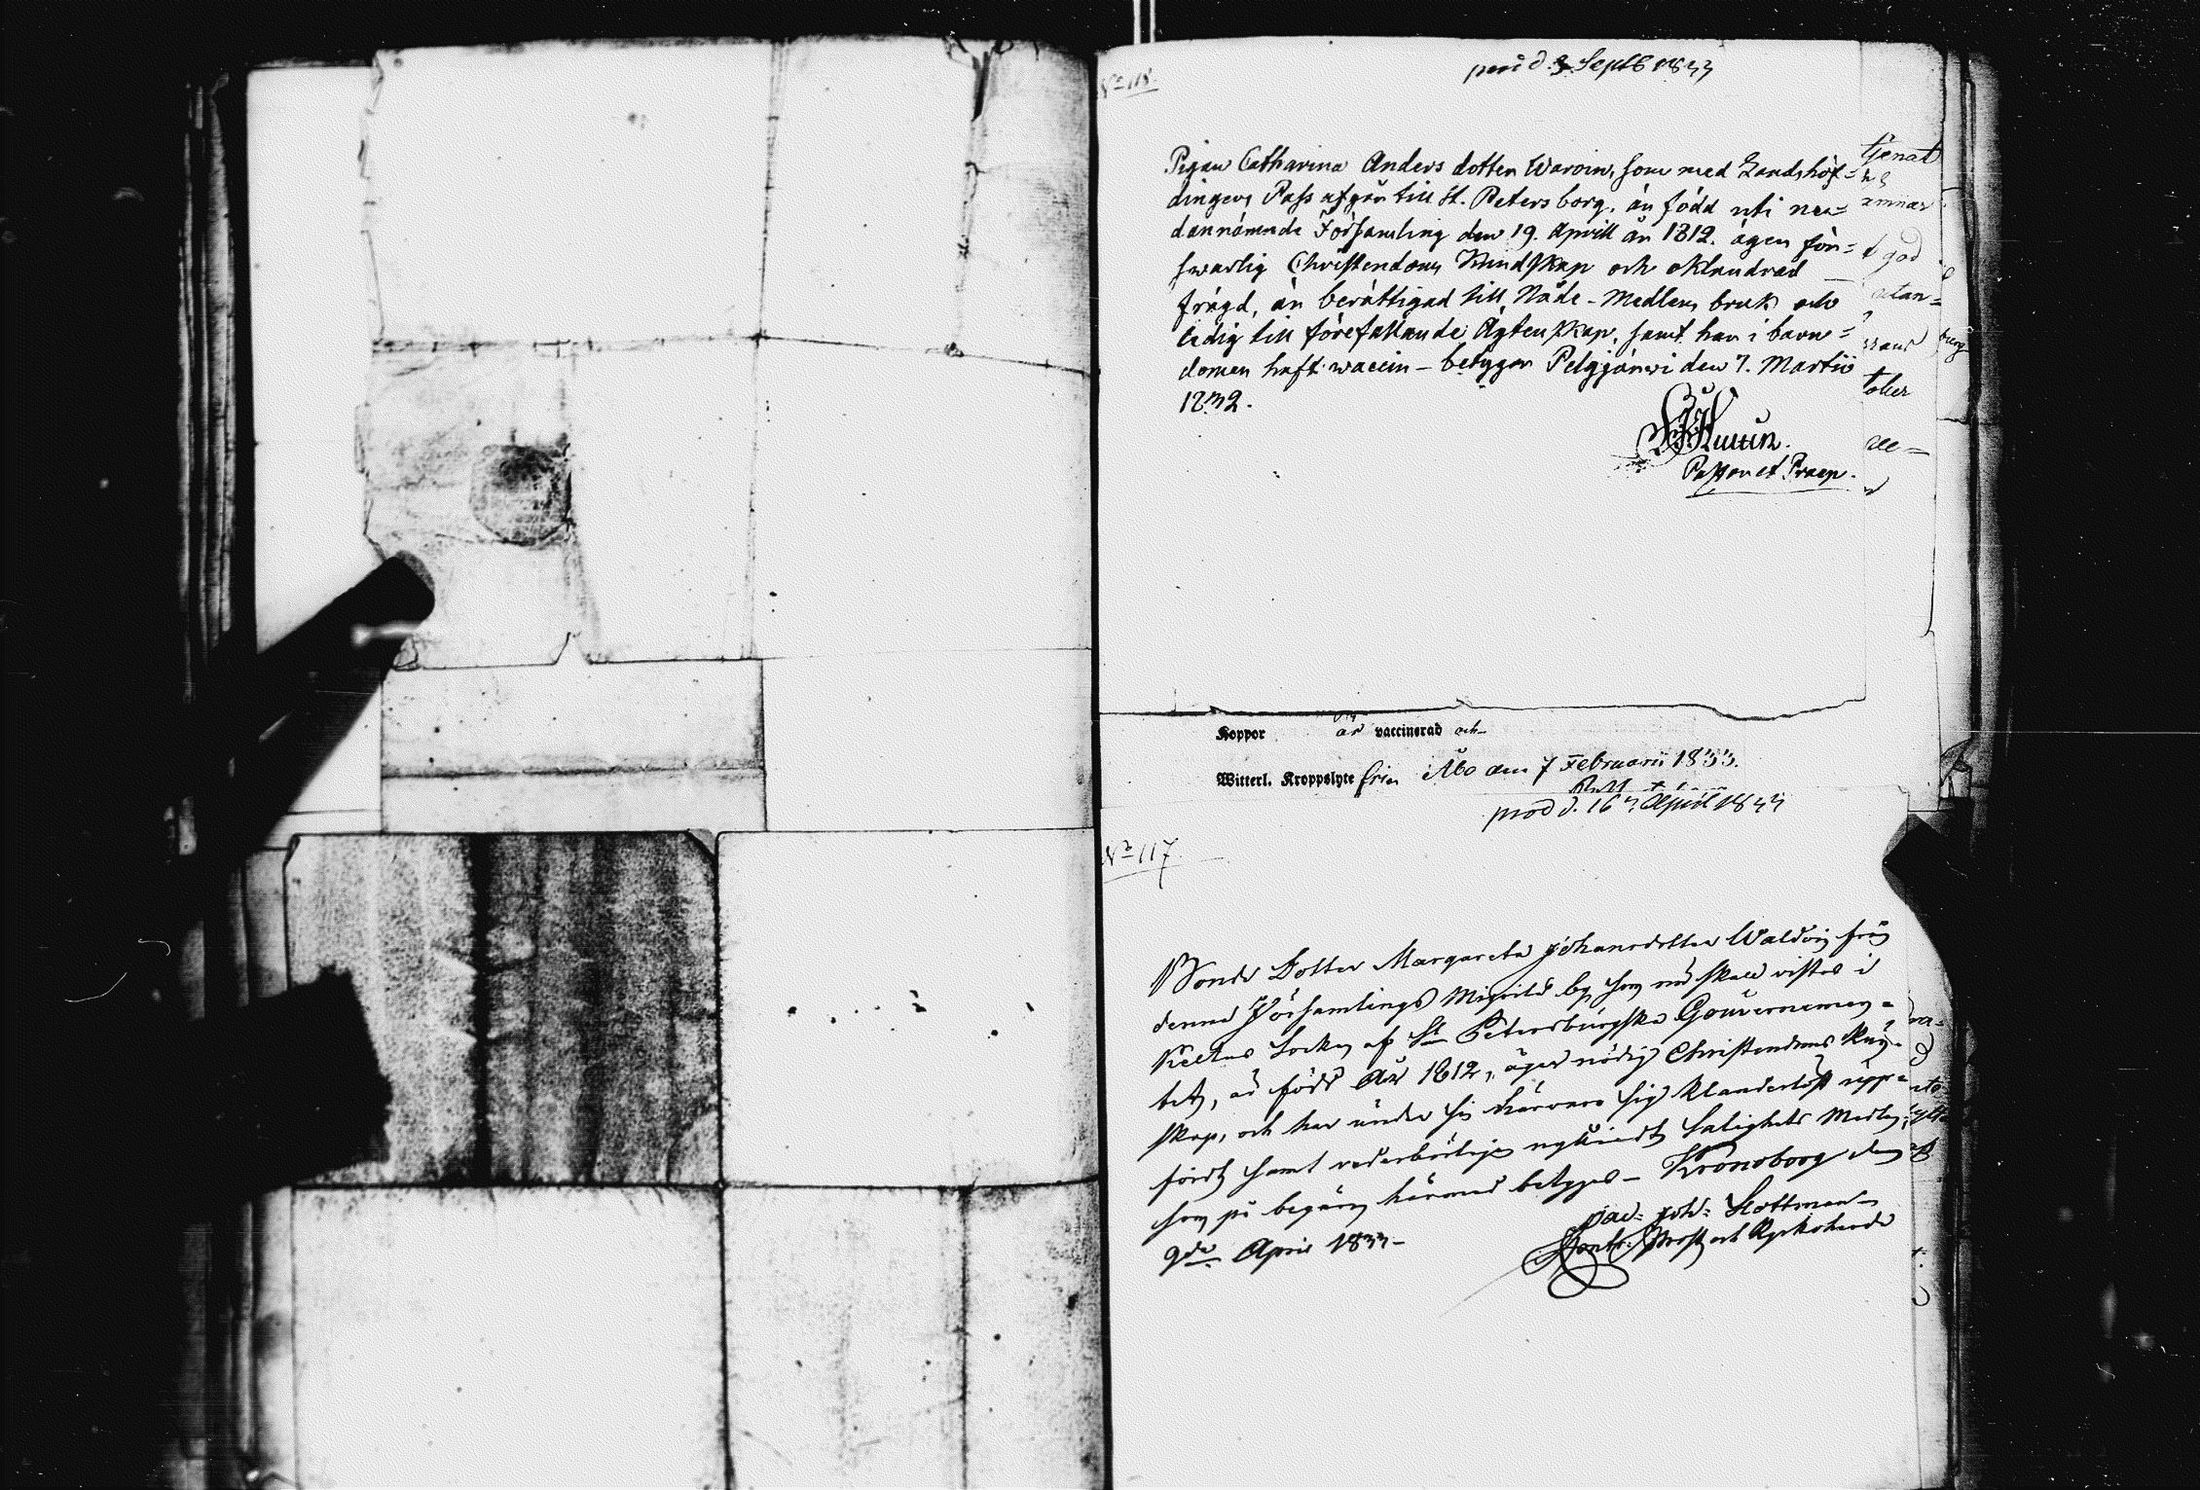 No 118.
prod d. 3 Septb 1833
Pigan Catharina Anders dotter Waroin, som med Landshöf=
dingens Pass afgår till St. Petersborg, är född uti ne=
dannämnde Församling den 19. Aprill år 1812. äger för=
swarlig Christendoms Kundskap och oklandrad
frägd, är berättigad till Nåde-Medlens bruk och
ledig till förefallande Ägtenskap, samt har i barn=
domen haft vaccin – betygar Pelgjärwi den 7. Martii
1832.
Pastor et Praep.
tjenat
amnar
t god
utan=
tober
Koppor är vaccinerad och
Witterl. Kroppslyte fri Åbo den 7 Februarii 1833.
prod d. 16 April 1833
No 117.
Bonde Dotter Margareta Johansdotter Waldoin från
denna Församlings by som nu skall vistas i
Keltos Socken af St Petersburgska Gouvernemen=
tet, är född År 1812, äger nödig Christendoms Kun=
skap, och har under sin härvaro sig klanderlöst upp=
fördt samt vederbörligen nyttiadt Salighets Medlen,
som på begäran härmed betygas – Kronoborg den
9de April 1833 –
Jac: Joh: Hottman
Contr: Prost och Kyrkoherde